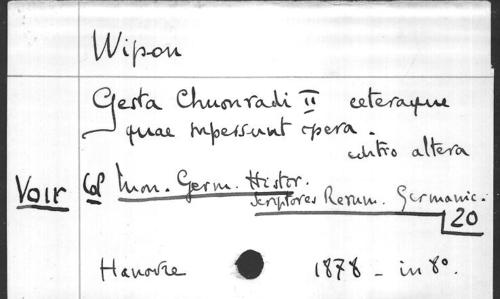 Wipon
Gesta Chuonradi II ceteraque
quae supersunt opera.
editio altera
Voir Col Mon. Germ. Histor.
Scriptores Rerum. Germanic.
20
Hanovre 1878 - in 8º.